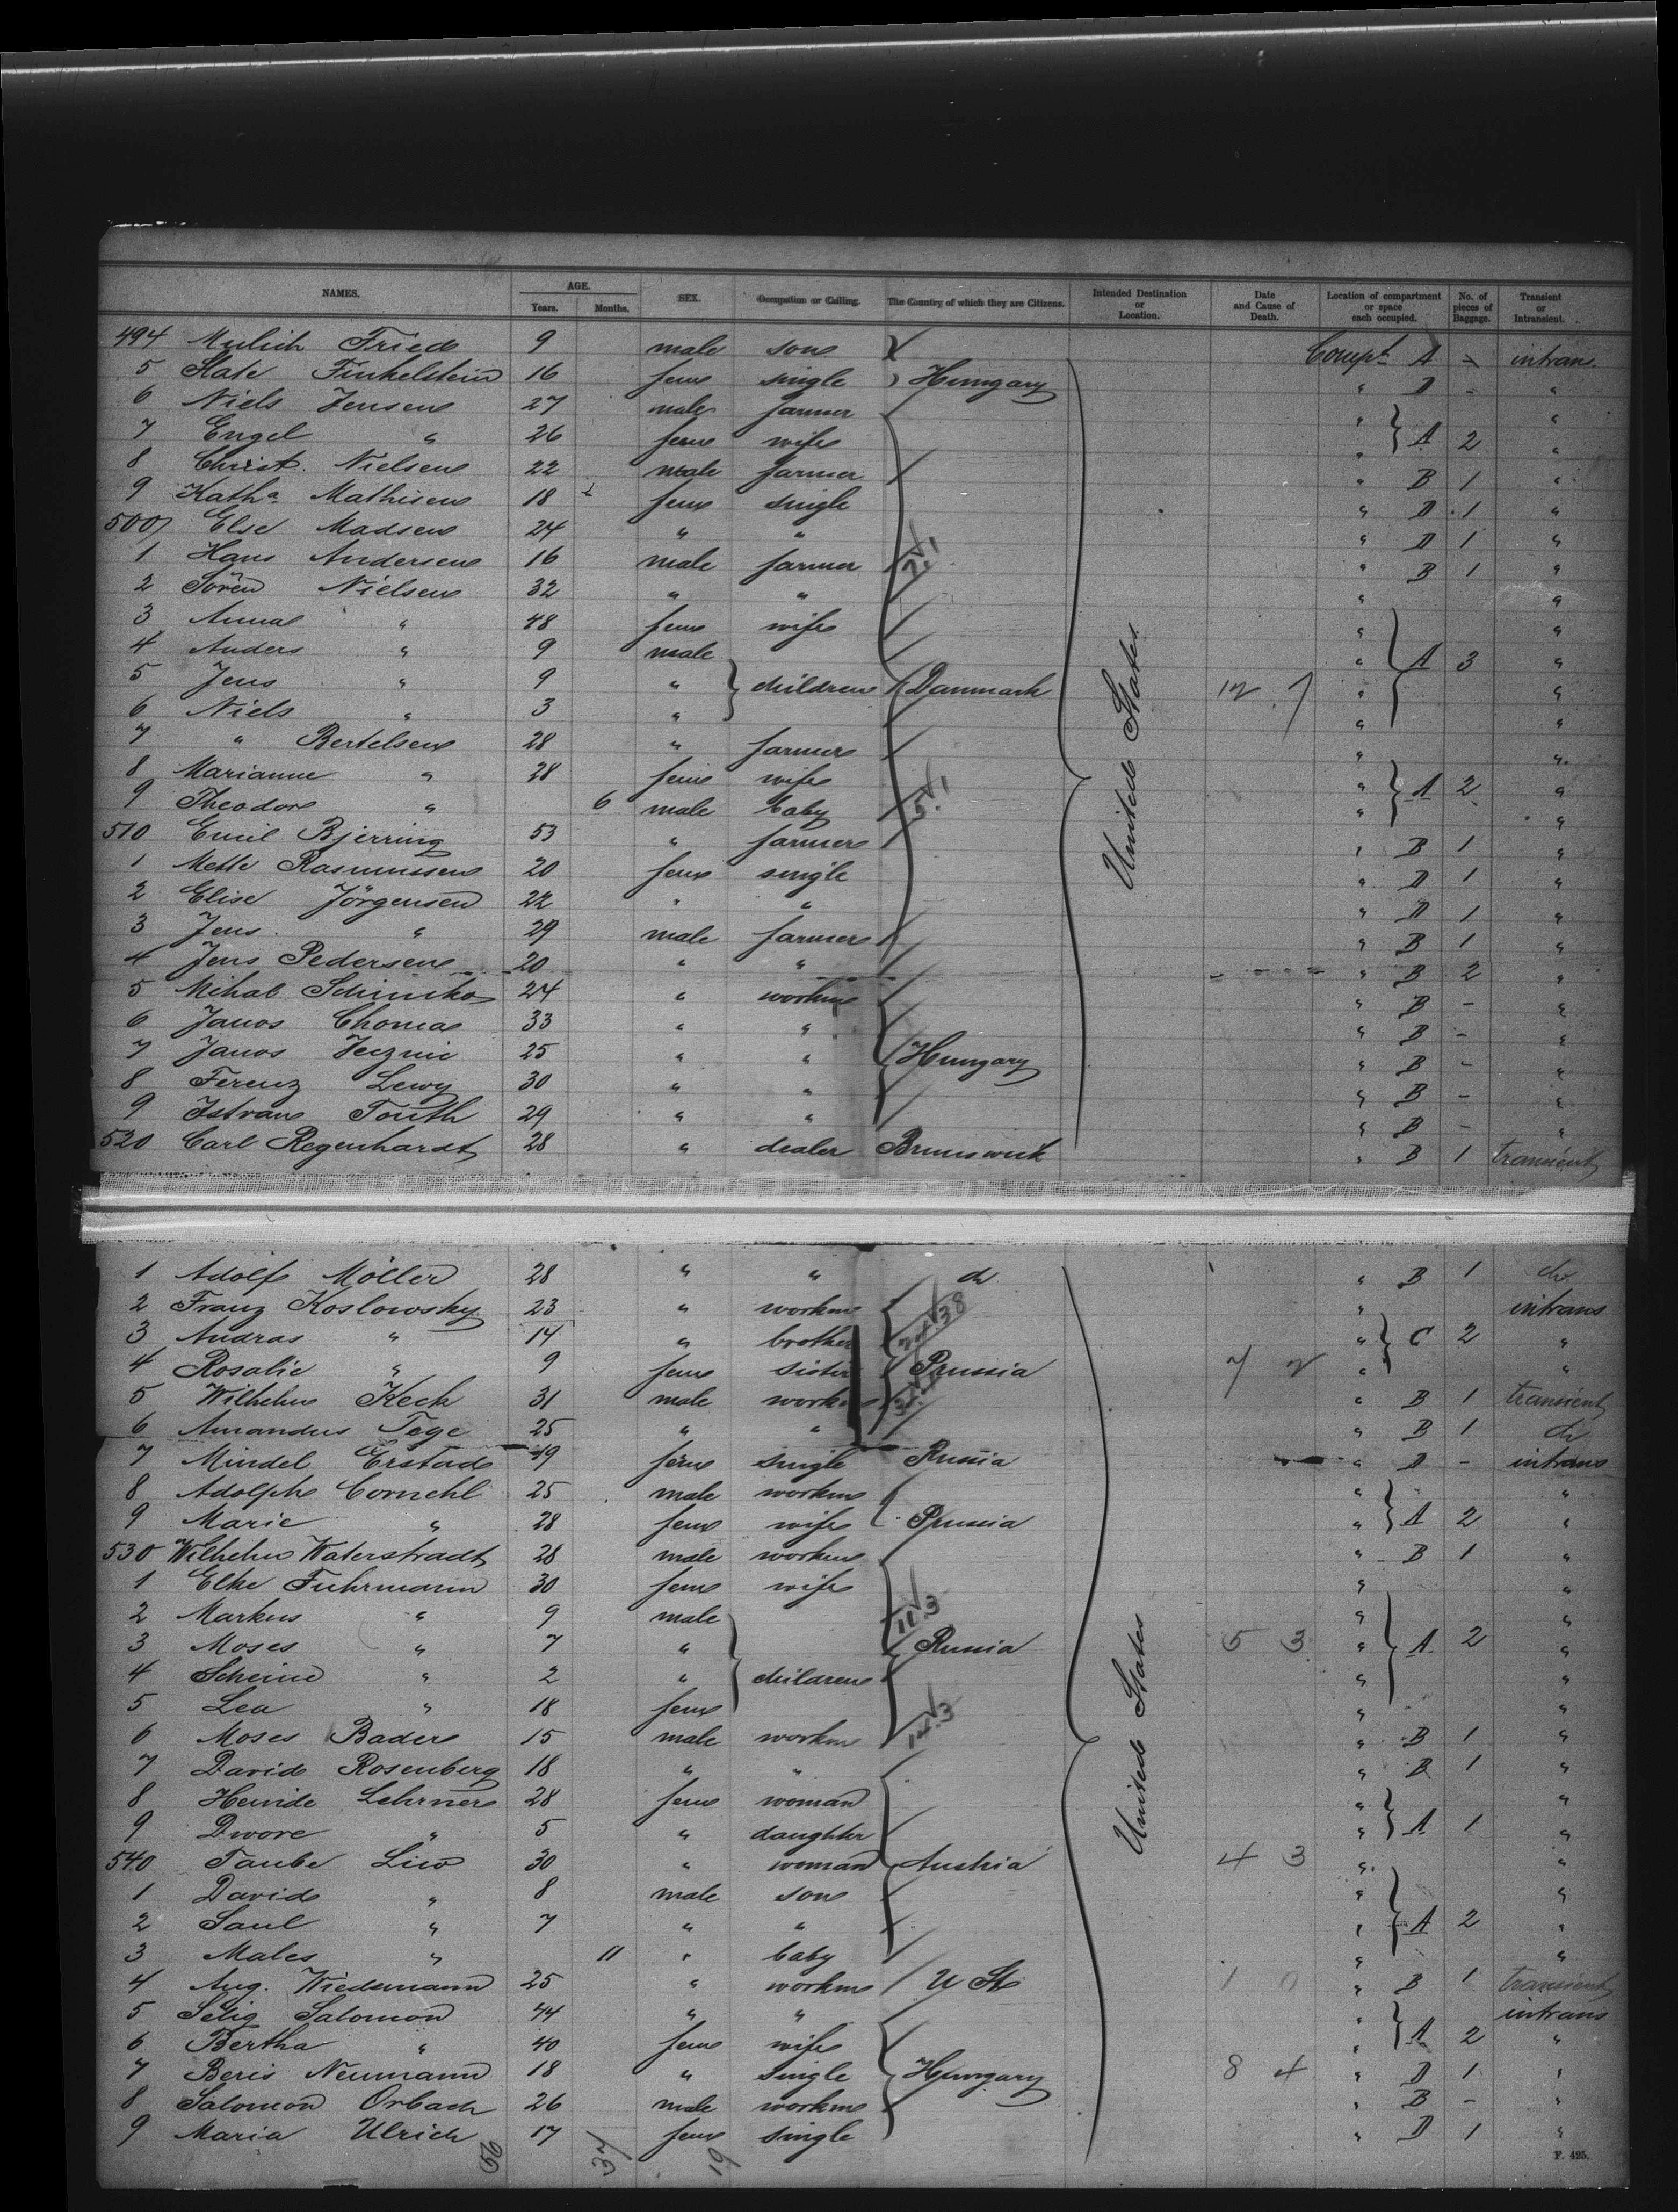 NAMES. AGE. Years. Months. SEX. Occupation or Calling. The Country of which they are Citizens. Intended Destination or Location. Date and Cause of Death. Location of compartment or space each occupied. No. of pieces of Baggage. Transient or Intransient.
494 Fried 9 male son Compt A - intrans.
5 Slate Finkelstein 16 fem single Hungary " D - "
6 Niels Jensen 27 male farmer " "
7 Engel " 26 fem wife " A 2 "
8 Christ. Nielsen 22 male farmer " B 1 "
9 Kath⁠a Mathisen 18 fem single " D 1 "
500 Else Madsen 24 " " " D 1 "
1 Hans Andersen 16 male farmer " B 1 "
2 Sören Nielsen 32 " " " "
3 Anna " 48 fem wife " "
4 Anders " 9 male " A 3 "
5 Jens " 9 " children Danmark 12 7 " "
6 Niels " 3 " " "
7 " Bertelsen 28 " farmer " "
8 Marianne " 28 fem wife " A 2 "
9 Theodor " 6 male baby " "
510 Emil Bjerring 53 " farmer " B 1 "
1 Mette Rasmussen 20 fem single " D 1 "
2 Elise Jörgensen 22 " " " D 1 "
3 Jens " 29 male farmer " B 1 "
4 Jens Pedersen 20 " " " B 2 "
5 Mihal 24 " workm " B - "
6 Janos Choma 33 " " " B - "
7 Janos 25 " " Hungary " B - "
8 Ferenz Lewy 30 " " " B - "
9 Istvan Touth 29 " " " B - "
520 Carl Regenhardt 28 " dealer Brunswick " B 1 transient
United States
1 Adolf Möller 28 " " do " B 1 do
2 Franz Koslowsky 23 " workm " intrans
3 Andras " 14 " brother " C 2 "
4 Rosalie " 9 fem sister Prussia 7 2 " "
5 Wilhelm Keck 31 male workm " B 1 transient
6 Amandus Tege 25 " " " B 1 do
7 Mindel Erstad 19 fem single Russia " D - intrans
8 Adolph Cornehl 25 male workm " "
9 Marie " 28 fem wife Prussia " A 2 "
530 Wilhelm Waterstradt 28 male workm " B 1 "
1 Elke Fuhrmann 30 fem wife " "
2 Markus " 9 male " "
3 Moses " 7 " Russia 5 3 " A 2 "
4 Scheine " 2 " children " "
5 Lea " 18 fem " "
6 Moses Bader 15 male workm " B 1 "
7 David Rosenberg 18 " " " B 1 "
8 Heinde Lehrner 28 fem woman " "
9 Dwore " 5 " daughter " A 1 "
540 Taube Liw 30 " woman Austria 4 3 " "
1 David " 8 male son " "
2 Saul " 7 " " " A 2 "
3 Males " 11 " baby " "
4 Aug. Wiedemann 25 " workm U St 1 0 " B 1 transient
5 Selig Salomon 44 " " " intrans
6 Bertha " 40 fem wife " A 2 "
7 Beris Neumann 18 " single Hungary 8 4 " D 1 "
8 Salomon Orbach 26 male workm " B - "
9 Maria Ulrich 17 fem single " D 1 "
United States
37 19
F. 425.